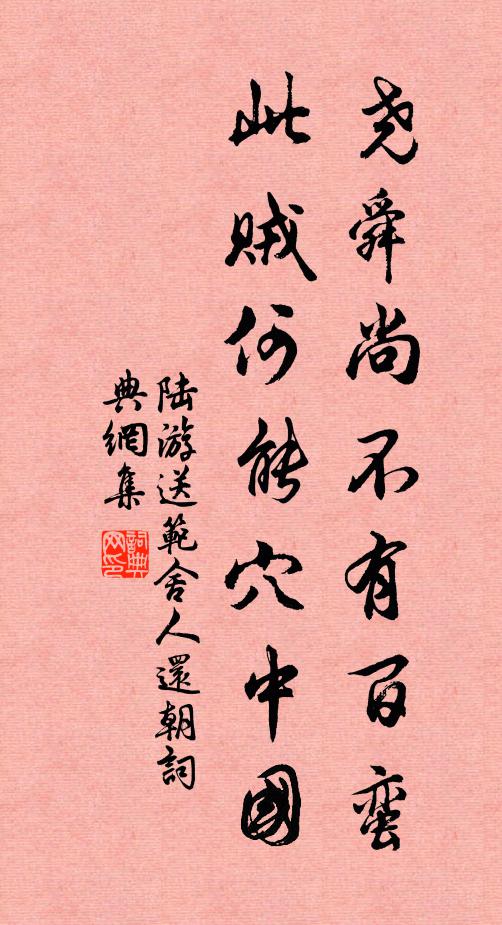 尧舜尚不有百蛮
此贼何能穴中國
陆游送範舍人還朝詞
典網集
詞典网印